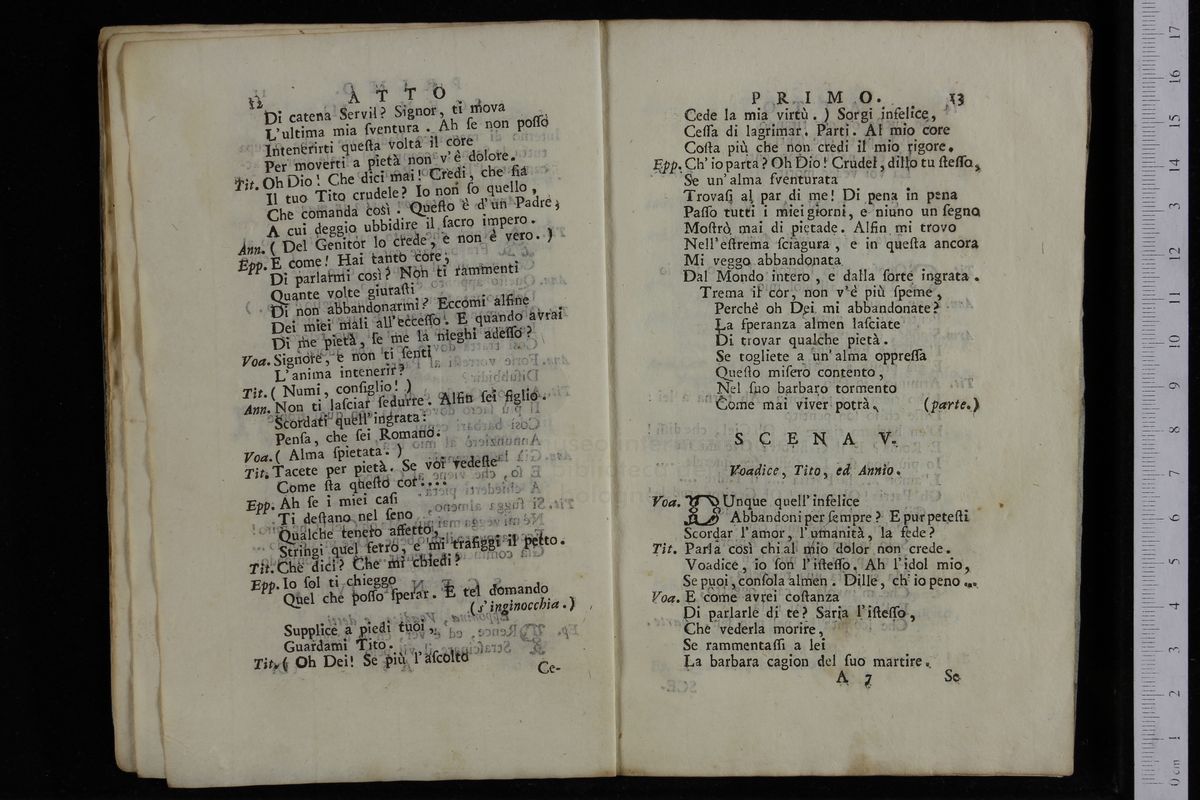 12 ATTO
Di catena Servil? Signor, ti mova
L'ultima mia ſventura. Ah ſe non poſſo
Intenerirti queſta volta il core
Per moverti a pietà non v'è dolore.
Tit. Oh Dio! Che dici mai! Credi, che ſia
Il tuo Tito crudele? Io non ſo quello,
Che comanda così. Queſto è d'un Padre,
A cui deggio ubbidire il ſacro impero.
Ann. (Del Genitor lo crede, e non è vero.)
Epp. E come! Hai tanto core,
Di parlarmi così? Non ti rammenti
Quante volte giuraſti
Di non abbandonarmi? Eccomi alfine
Dei miei mali all'ecceſſo. E quando avrai
Di me pietà, ſe me la nieghi adeſſo?
Voa. Signore, e non ti ſenti
L'anima intenerir?
Tit. (Numi, conſiglio!)
Ann. Non ti laſciar ſedurre. Alfin ſei figlio.
Scordati quell'ingrata:
Penſa, che ſei Romano.
Voa. (Alma ſpietata.)
Tit. Tacete per pietà. Se voi vedeſte
Come ſta queſto cor....
Epp. Ah ſe i miei caſi
Ti deſtano nel ſeno
Qualche tenero affetto,
Stringi quel ferro, e mi trafiggi il petto.
Tit. Che dici? Che mi chiedi?
Epp. Io ſol ti chieggo
Quel che poſſo ſperar. E tel domando
(s'inginocchia.)
Supplice a piedi tuoi,
Guardami Tito.
Tit. (Oh Dei! Se più l'aſcolto
Ce-
PRIMO. 13
Cede la mia virtù.) Sorgi infelice,
Ceſſa di lagrimar. Parti. Al mio core
Coſta più che non credi il mio rigore.
Epp. Ch'io parta? Oh Dio! Crudel, dillo tu ſteſſo,
Se un'alma ſventurata
Trovaſi al par di me! Di pena in pena
Paſſo tutti i miei giorni, e niuno un ſegno
Moſtrò mai di pietade. Alfin mi trovo
Nell'eſtrema ſciagura, e in queſta ancora
Mi veggo abbandonata
Dal Mondo intero, e dalla ſorte ingrata.
Trema il cor, non v'è più ſpeme,
Perchè oh Dei mi abbandonate?
La ſperanza almen laſciate
Di trovar qualche pietà.
Se togliete a un'alma oppreſſa
Queſto miſero contento,
Nel ſuo barbaro tormento
Come mai viver potrà. (parte.)
SCENA V.
Voadice, Tito, ed Annio.
Voa. DUnque quell'infelice
Abbandoni per ſempre? E pur poteſti
Scordar l'amor, l'umanità, la fede?
Tit. Parla così chi al mio dolor non crede.
Voadice, io ſon l'iſteſſo. Ah l'idol mio,
Se puoi, conſola almen. Dille, ch'io peno...
Voa. E come avrei coſtanza
Di parlarle di te? Saria l'iſteſſo,
Che vederla morire,
Se rammentaſſi a lei
La barbara cagion del ſuo martire.
A 7 Se